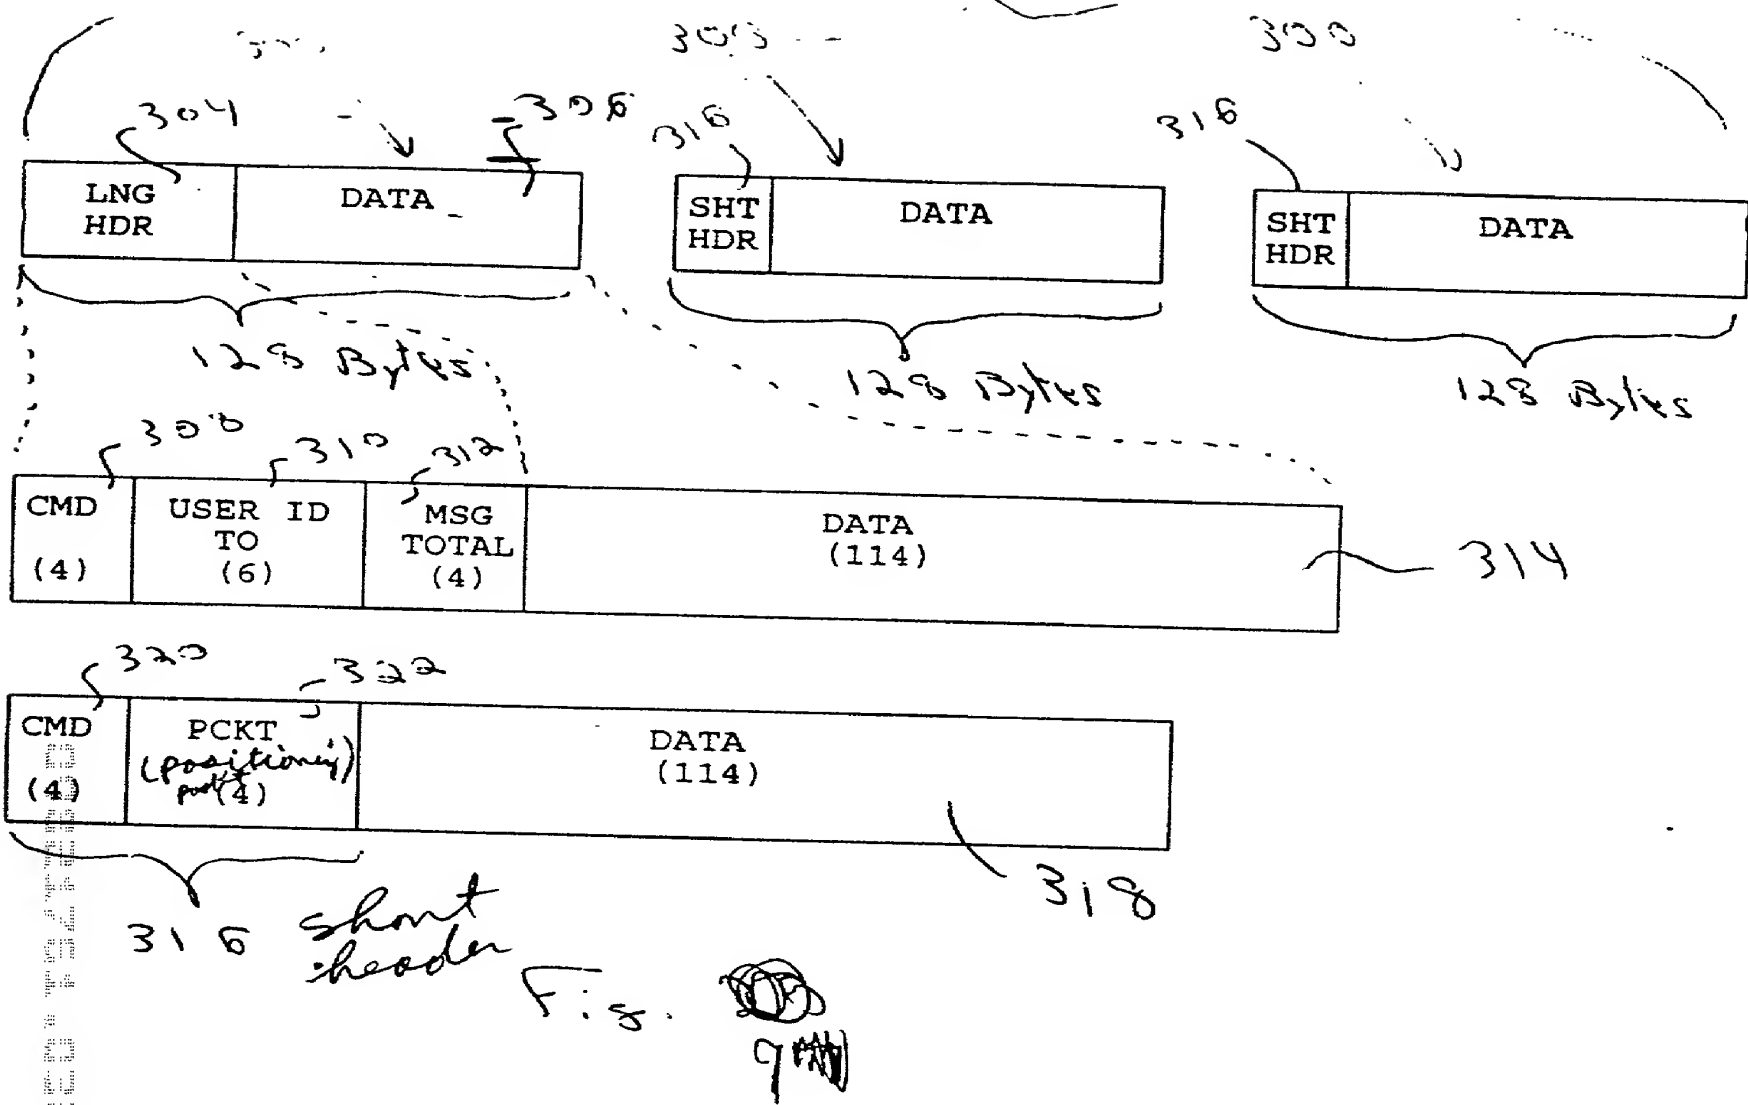 300
300
304
306
316
316
LNG HDR
DATA
SHT HDR
DATA
SHT HDR
DATA
128 Bytes
128 Bytes
128 Bytes
308
310
312
CMD (4)
USER ID TO (6)
MSG TOTAL (4)
DATA (114)
314
320
322
CMD (4)
PCKT (positioning) (4)
DATA (114)
318
316 short header
Fig.
9